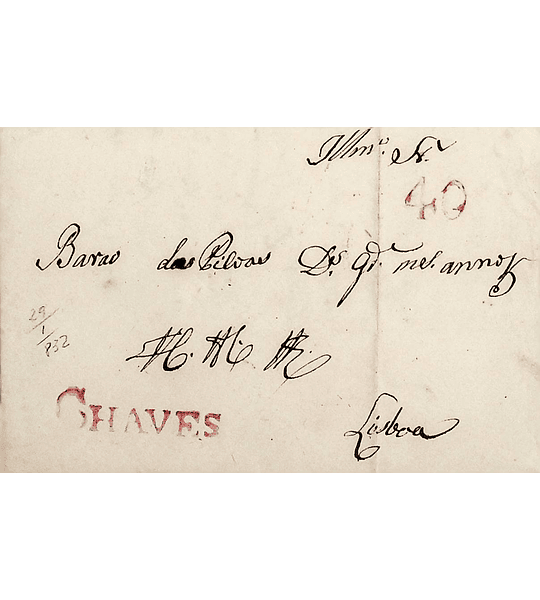 Illmo. Sr.
40
Barao das Picoas Ds. gd. ms. annos
29/1/832
CHAVES
Lisboa